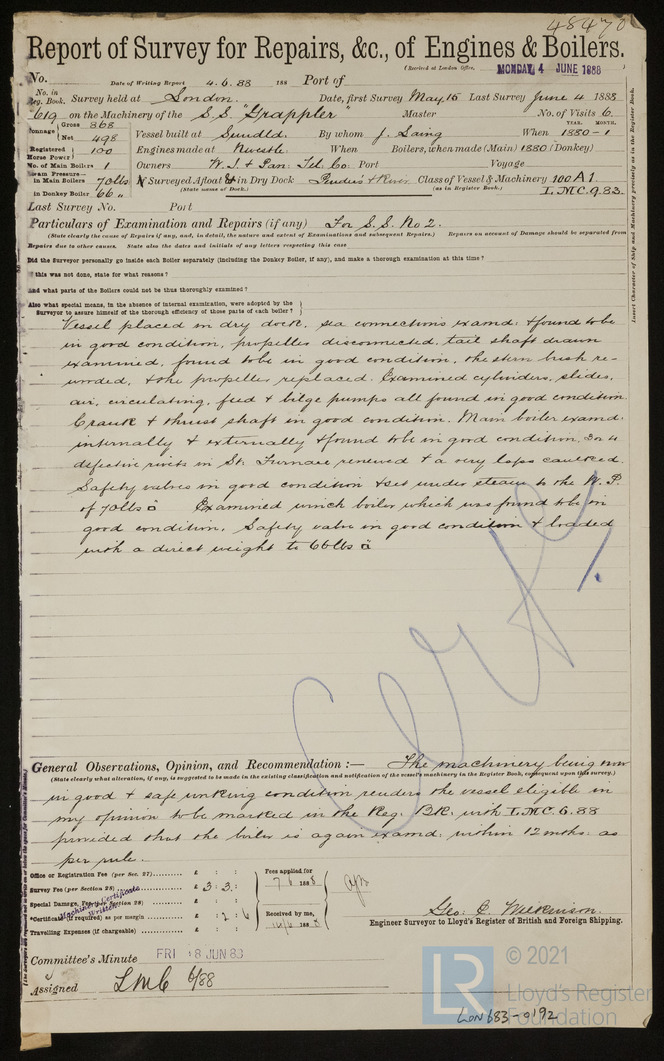 48470
Report of Survey for Repairs, &c., of Engines & Boilers.
(Received at London Office, MONDAY 4 JUNE 1888
No. Date of Writing Report 4.6.88 188 Port of
No. in Reg. Book. Survey held at London. Date, first Survey May 15 Last Survey June 4 1888
619 on the Machinery of the S.S. "Grappler" Master No. of Visits 6.
Tonnage Gross 868 Net 498 Vessel built at Sundld. By whom J. Laing When YEAR. MONTH. 1880-1
Registered Horse Power 100 Engines made at Nwcstle. When Boilers, when made (Main) 1880 (Donkey)
No. of Main Boilers 1 Owners W. I. & Pan: Tel. Co. Port Voyage
Steam Pressure— in Main Boilers 70lbs If Surveyed Afloat & in Dry Dock & River Class of Vessel & Machinery 100A1.
in Donkey Boiler 66 " (State name of Dock.) (as in Register Book.) L.M.C. 9.83.
Last Survey No. Port
Particulars of Examination and Repairs (if any) For S.S. No 2.
(State clearly the cause of Repairs if any, and, in detail, the nature and extent of Examinations and subsequent Repairs.) Repairs on account of Damage should be separated from
Repairs due to other causes. State also the dates and initials of any letters respecting this case
Did the Surveyor personally go inside each Boiler separately (including the Donkey Boiler, if any), and make a thorough examination at this time?
If this was not done, state for what reasons?
And what parts of the Boilers could not be thus thoroughly examined?
Also what special means, in the absence of internal examination, were adopted by the
Surveyor to assure himself of the thorough efficiency of those parts of each boiler?
Insert Character of Ship and Machinery precisely as in the Register Book.
Vessel placed in dry dock. sea connections examd: & found to be
in good condition, propeller disconnected, tail shaft drawn
examined, found to be in good condition, the stern bush re-
wooded, & the propeller replaced. Examined cylinders, slides,
air, circulating, feed & bilge pumps all found in good condition.
Crank & thrust shaft in good condition. Main boiler examd:
internally & externally & found to be in good condition, 3 or 4
defective rivets in St: Furnace renewed & a very laps caulked.
Safety valves in good condition & set under steam to the W. P.
of 70lbs Examined winch boiler which was found to be in
good condition, Safety valve in good condition & loaded
with a direct weight to 66lbs
Cert.
General Observations, Opinion, and Recommendation :— The machinery being now
(State clearly what alteration, if any, is suggested to be made in the existing classification and notification of the vessel's machinery in the Register Book, consequent upon this survey.)
in good & safe working condition renders the vessel eligible in
my opinion to be marked in the Reg: BK. with L.M.C. 6.88
provided that the boiler is again examd: within 12 mths: as
per rule.
Office or Registration Fee (per Sec. 27)......... £ : : Fees applied for
Survey Fee (per Section 28) ......... £ 3 : 3 : 7/6 1888
Special Damage, Fee (per Section 28) ......... £ : :
Machinery Certificate Written
*Certificate (if required) as per margin ......... £ : 2 : 6 Received by me,
Travelling Expenses (if chargeable) ......... £ : : 188
Geo: C. Wilkinson.
Engineer Surveyor to Lloyd's Register of British and Foreign Shipping.
Committee's Minute FRI 8 JUN 88
Assigned LMC 6/88
LR © 2021
Lloyd's Register
Foundation
LON 683-0192